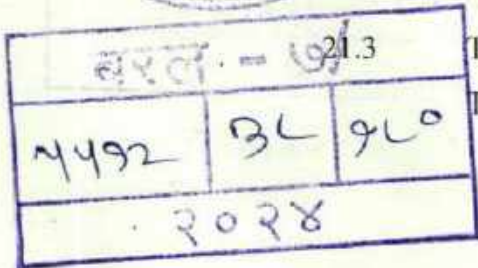 बरल - ७/ 21.3
५५१२ ३८ १८०
२०२४